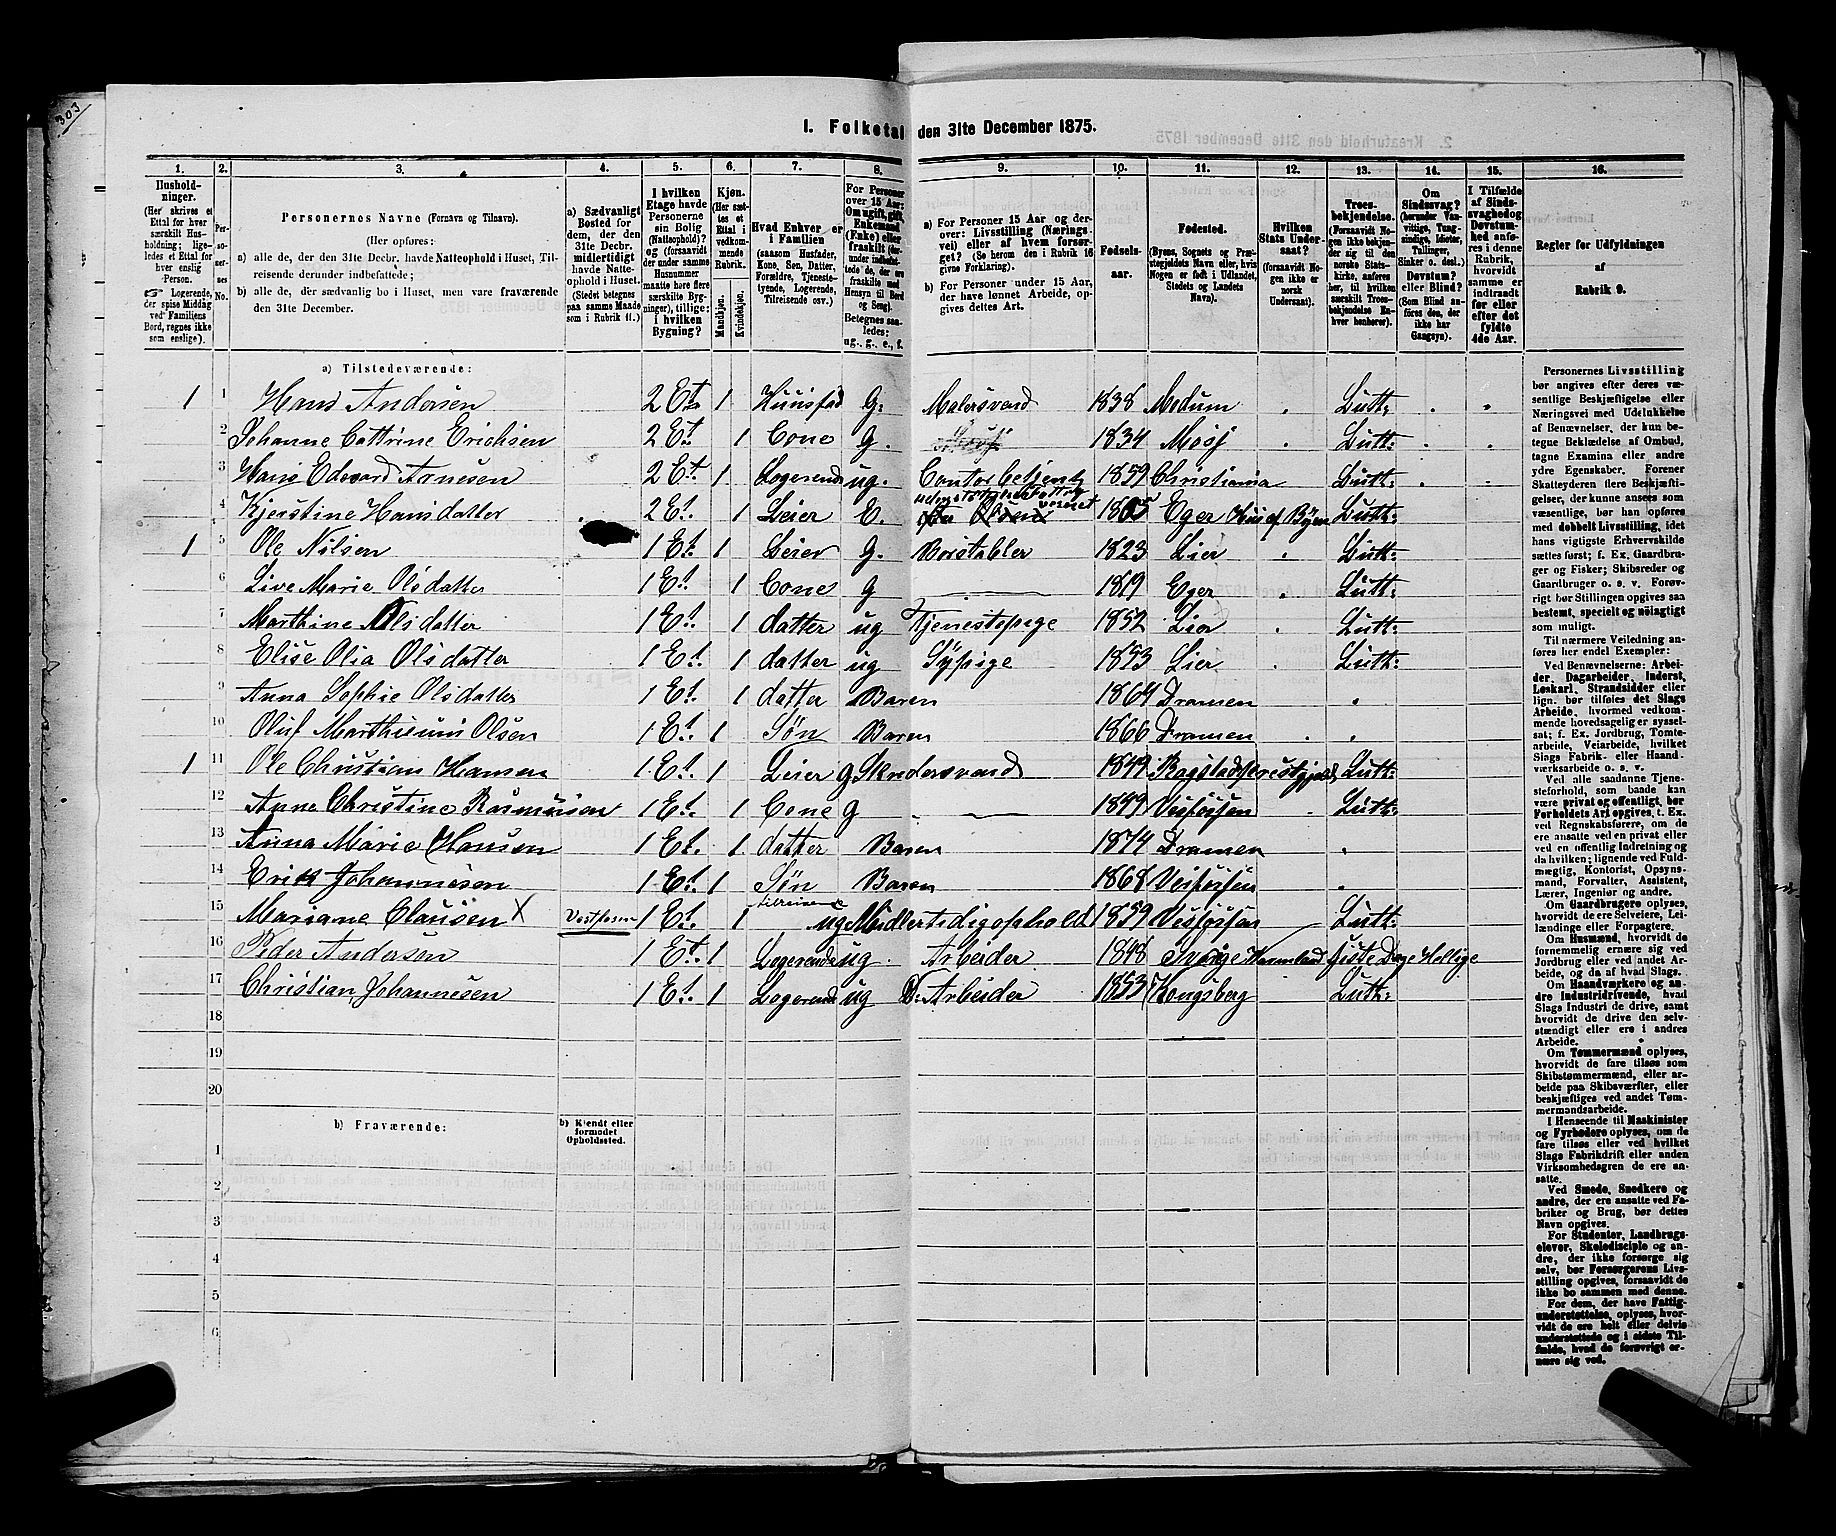 303
I. Folketal den 31te December 1875.
1. 2. 3. 4. 5. 6. 7. 8. 9. 10. 11. 12. 13. 14. 15. 16.
Husholdninger. (Her skrives et Ettal for hver særskilt Husholdning; ligeledes et Ettal for hver enslig Person. Logerende, der spise Middag ved Familiens Bord, regnes ikke som enslige).
Personernes No.
Personernes Navne (Fornavn og Tilnavn).
(Her opføres:
a) alle de, der den 31te Decbr. havde Natteophold i Huset, Tilreisende derunder indbefattede;
b) alle de, der sædvanlig bo i Huset, men vare fraværende den 31te December.
a) Sædvanligt Bosted for dem, der den 31te Decbr. midlertidigt havde Natteophold i Huset. (Stedet betegnes paa samme Maade som i Rubrik 11.)
I hvilken Etage havde Personerne sin Bolig (Natteophold)? og (forsaavidt der under samme Husnummer maatte høre flere særskilte Bygninger), tillige: i hvilken Bygning?
Kjøn. (Her sættes et Ettal i vedkommende Rubrik. Mandkjøn. Kvindekjøn.
Hvad Enhver er i Familien (saasom Husfader, Kone, Søn, Datter, Forældre, Tjenestetyende, Logerende, Tilreisende osv.)
For Personer over 15 Aar: Om ugift, gift, Enkemand (Enke) eller fraskilt
Betegnes saaledes: ug., g., e., f.
a) For Personer 15 Aar og derover: Livsstilling (Næringsvei) eller af hvem forsørget? (Se herom den i Rubrik 16 givne Forklaring).
b) For Personer under 15 Aar, der have lønnet Arbeide, opgives dettes Art.
Fødselsaar.
Fødested. (Byens, Sognets og Præstegjeldets Navn, eller, hvis Nogen er født i Udlandet, Stedets og Landets Navn).
Hvilken Stats Undersaat? (forsaavidt Nogen ikke er norsk Undersaat).
Troesbekjendelse. (Forsaavidt Nogen ikke bekjender sig til den norske Statskirke, anføres her, til hvilken særskilt Troesbekjendelse Enhver henhører).
Om Sindssvag? (herunder Vanvittige, Tungsindige, Idioter, Tullinger, Sinker o. desl.) Døvstum? eller Blind? (Som Blind anføres den, der ikke har Gangsyn).
I Tilfælde af Sindssvaghed og Døvstumhed anføres i denne Rubrik, hvorvidt samme er indtraadt før eller efter det fyldte 4de Aar.
Regler for Udfyldningen af Rubrik 9.
a) Tilstedeværende:
1 1 Hans Andersen 2 Et. 1 Huusfad G. Malersvend 1838 Modum Luth:
2 Johanne Cattrine Erichsen 2 Et. 1 Cone G. 1834 Mosj Luth:
3 Hans Edvard Arnesen 2 Et. 1 Logerende ug. Contorbetjent 1859 Christiania Luth:
4 Kjerstine Hansdatter 2 Et. 1 Leier E. 1805 Eger Luth:
1 5 Ole Nilsen 1 Et. 1 Leier G. Boistabler 1823 Lier Luth:
6 Live Marie Olsdatter 1 Et. 1 Cone G 1819 Eger Luth:
7 Marthine Olsdatter 1 Et. 1 datter ug Tjenestepige 1852 Lier Luth:
8 Elise Olia Olsdatter 1 Et. 1 datter ug Sypige 1853 Lier Luth:
9 Anna Sophie Olsdatter 1 Et. 1 datter Baren 1864 Dramen
10 Oluf Marthinius Olsen 1 Et. 1 Søn Baren 1866 Dramen
1 11 Ole Christian Hansen 1 Et. 1 Leier g 1849 Luth:
12 Anne Christine Rasmussen 1 Et. 1 Cone g 1849 Vesfossen Luth:
13 Anna Marie Hansen 1 Et. 1 datter Baren 1874 Dramen
14 Erik Johannesen 1 Et. 1 Søn Baren 1868 Vesfossen
15 Mariane Clausen X Vestfossen 1 Et. 1 tilreisende ug Midlertidigophold 1859 Vesfossen Luth:
16 Peder Andersen 1 Et. 1 Logerende ug. Arbeider 1848 Sverge Vermland Siste Dage Hellige
17 Christian Johannesen 1 Et. 1 Logerend ug D: Arbeider 1853 Kongsberg Luth:
18
19
20
b) Fraværende:
b) Kjendt eller formodet Opholdssted.
1
2
3
4
5
6
Personernes Livsstilling bør angives efter deres væsentlige Beskjæftigelse eller Næringsvei med Udelukkelse af Benævnelser, der kun betegne Beklædelse af Ombud, tagne Examina eller andre ydre Egenskaber. Forener Skatteyderen flere Beskjæftigelser, der kunne ansees som væsentlige, bør han opføres med dobbelt Livsstilling, idet hans vigtigste Erhvervskilde sættes først; f. Ex. Gaardbruger og Fisker; Skibsreder og Gaardbruger o. s. v. Forøvrigt bør Stillingen opgives saa bestemt, specielt og nøiagtigt som muligt.
Til nærmere Veiledning anføres her endel Exempler:
Ved Benævnelserne: Arbeider, Dagarbeider, Inderst, Løskarl, Strandsidder eller lign. bør tilføies det Slags Arbeide, hvormed vedkommende hovedsagelig er sysselsat; f. Ex. Jordbrug, Tomtearbeide, Veiarbeide, hvilket Slags Fabrik- eller Haandværksarbeide o. s. v.
Ved alle saadanne Tjenesteforhold, som baade kan være privat og offentligt, bør Forholdets Art opgives, t. Ex. ved Regnskabsførere, om de ere ansatte ved en privat eller ved en offentlig Indretning og da hvilken; lignende ved Fuldmægtig, Kontorist, Opsynsmand, Forvalter, Assistent, Lærer, Ingeniør og andre.
Om Gaardbrugere oplyses, hvorvidt de ere Selveiere, Leilændinge eller Forpagtere.
Om Husmænd, hvorvidt de fornemmelig ernære sig ved Jordbrug eller ved andet Arbeide, og da af hvad Slags.
Om Haandværkere og andre Industridrivende, hvad Slags Industri de drive, samt hvorvidt de drive den selvstændigt eller ere i andres Arbeide.
Om Tømmermænd oplyses, hvorvidt de fare tilsøs som Skibstømmermænd, eller arbeide paa Skibsværfter, eller beskjæftiges ved andet Tømmermandsarbeide.
I Henseende til Maskinister og Fyrbødere oplyses, om de fare tilsøs eller ved hvilket Slags Fabrikdrift eller anden Virksomhedsgren de ere ansatte.
Ved Smede, Snedkere og andre, der ere ansatte ved Fabriker og Brug, bør dettes Navn opgives.
For Studenter, Landbrugselever, Skoledisciple og andre, der ikke forsørge sig selv, bør Forsørgerens Livsstilling opgives, forsaavidt de ikke bo sammen med denne.
For dem, der have Fattigunderstøttelse, oplyses, hvorvidt de ere helt eller delvis understøttede og i sidste Tilfælde, hvad de forøvrigt ernære sig ved.